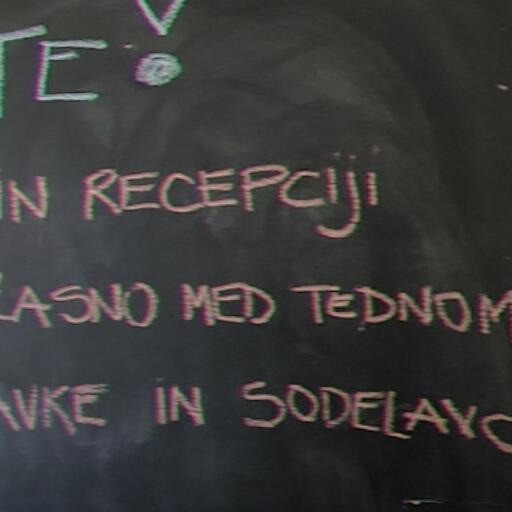 TE!
IN RECEPCIJI
ČASNO MED TEDNOM
AVKE IN SODELAVC